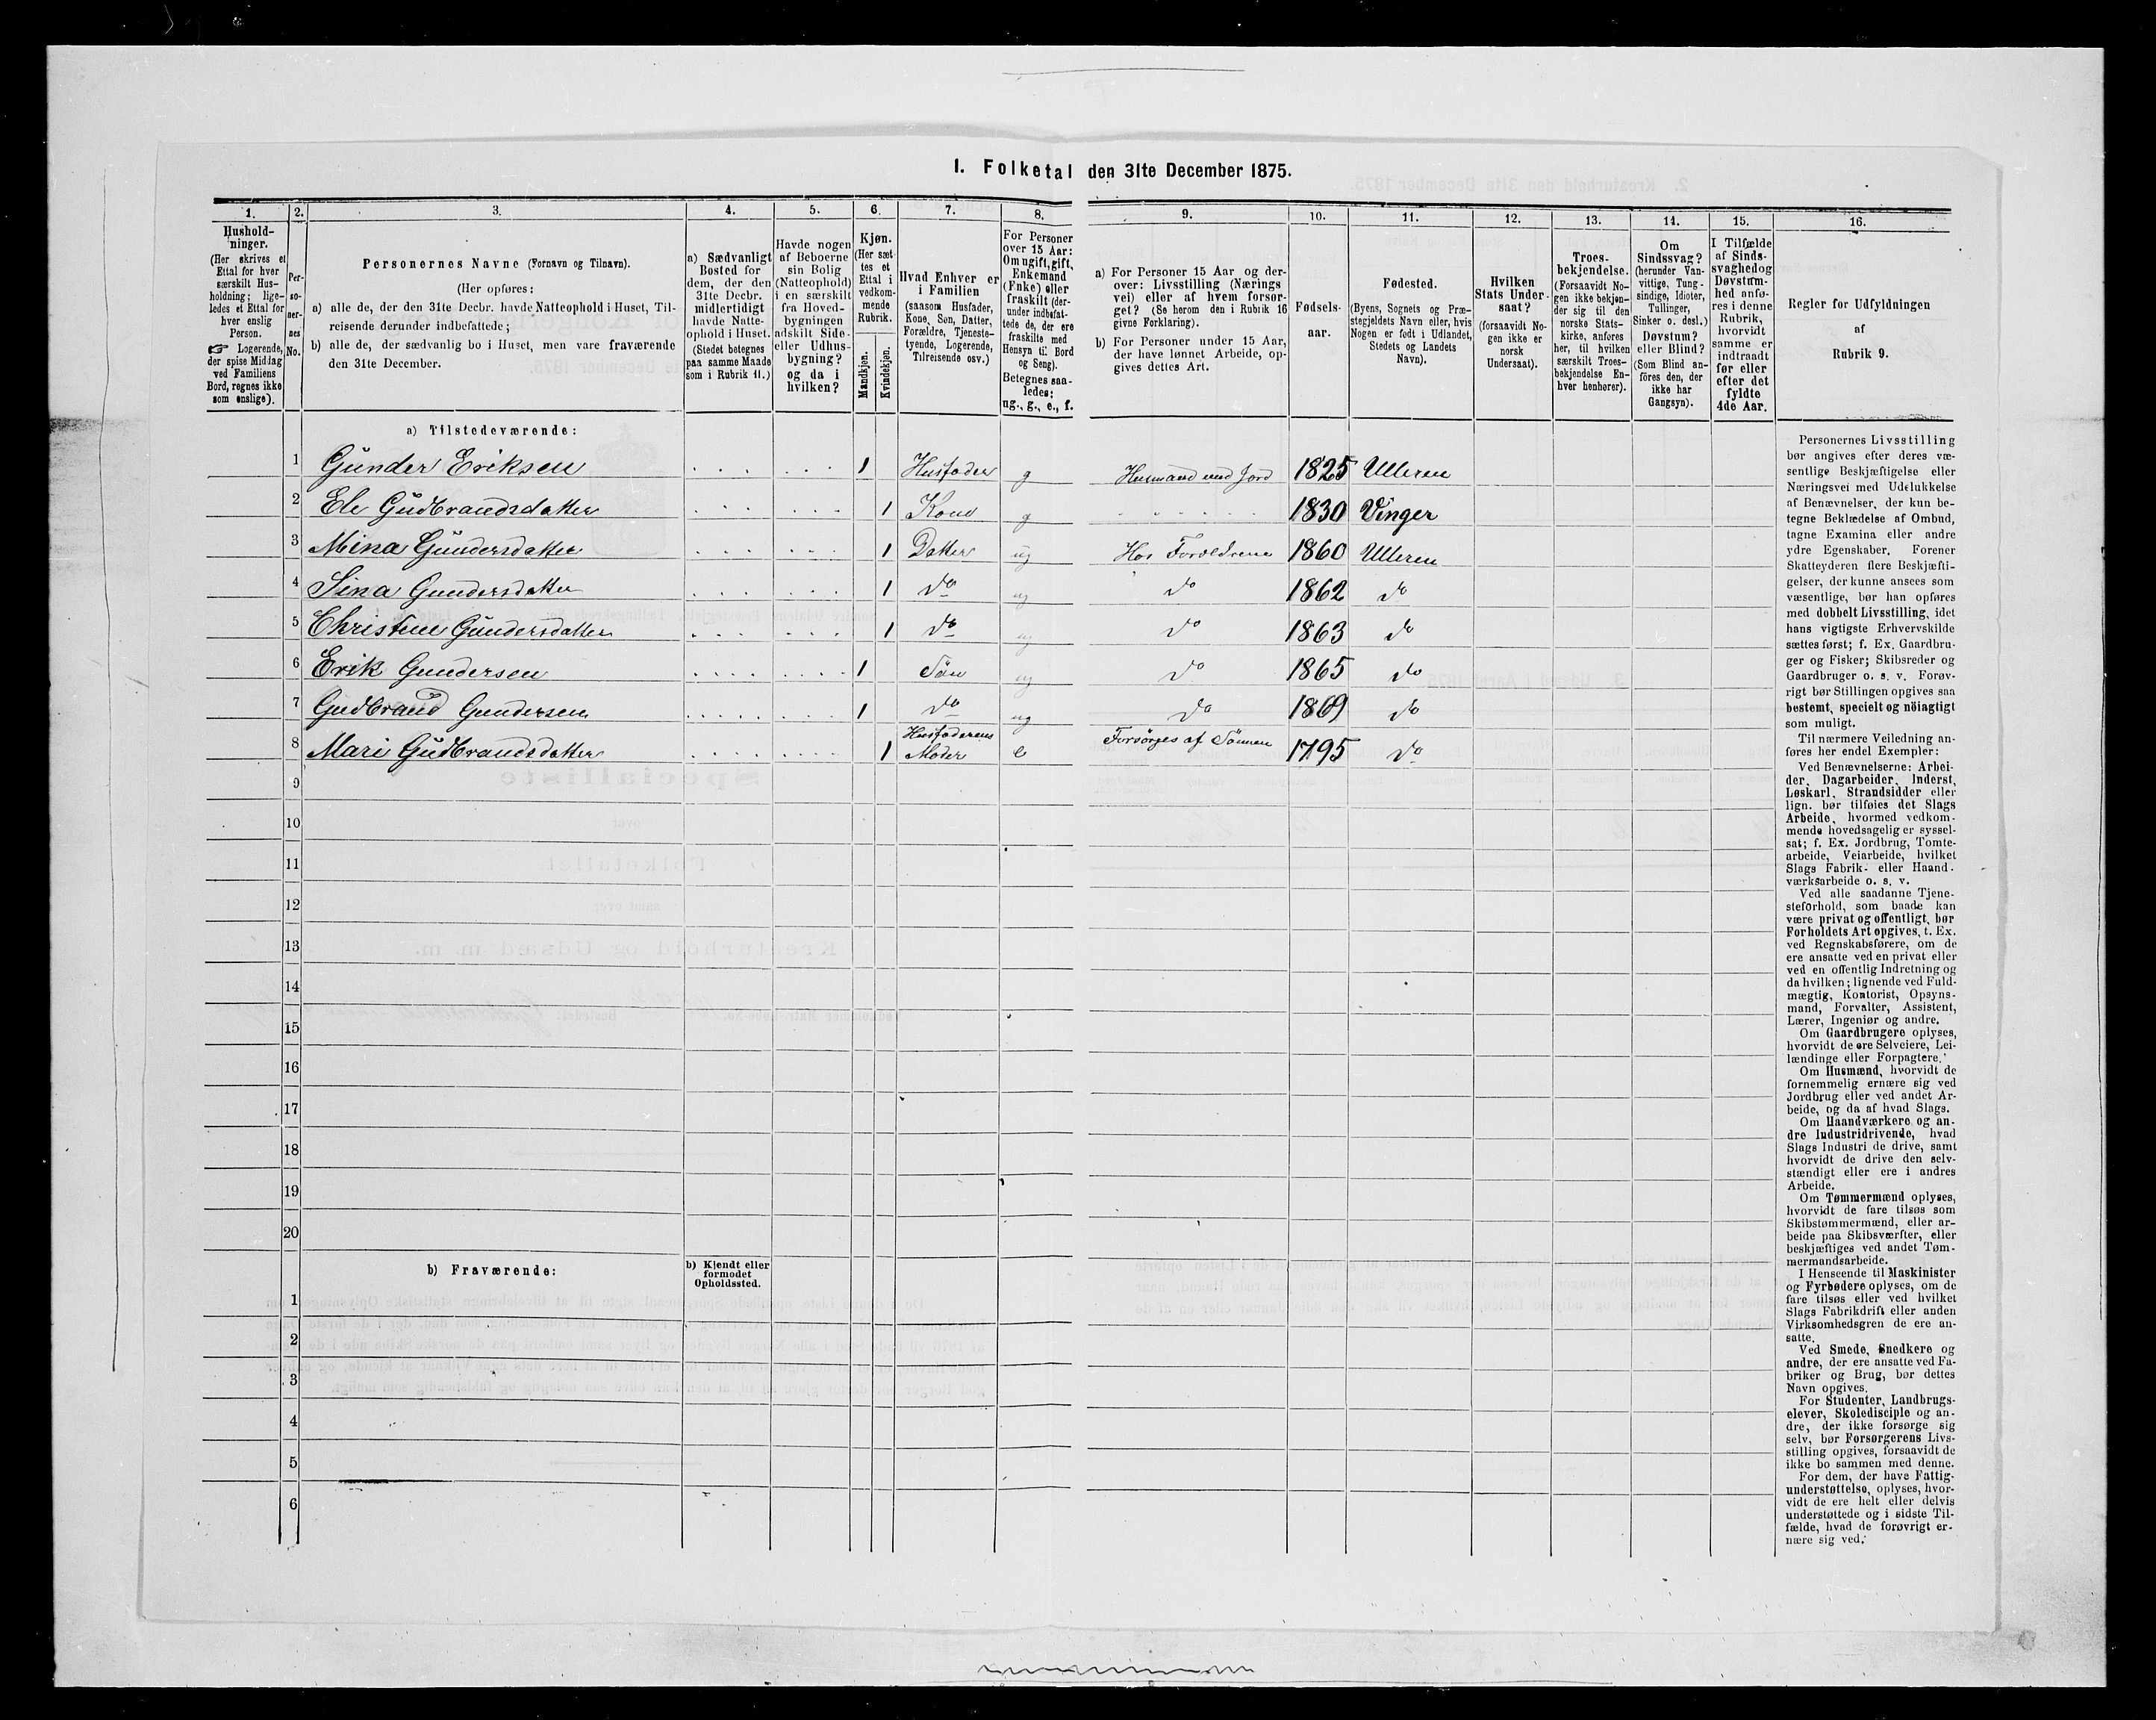 1. Folketal den 31te December 1875.
1. 2. 3. 4. 5. 6. 7. 8. 9. 10. 11. 12. 13. 14. 15. 16.
Hushold-
ninger.
(Her skrives et
Ettal for hver
særskilt Hus-
holdning; lige-
ledes et Ettal for
hver enslig
Person.
☞ Logerende,
der spise Middag
ved Familiens
Bord, regnes ikke
som enslige).
Per-
so-
ner-
nes
No.
Personernes Navne (Fornavn og Tilnavn).
(Her opføres:
a) alle de, der den 31te Decbr. havde Natteophold i Huset, Til-
reisende derunder indbefattede;
b) alle de, der sædvanlig bo i Huset, men vare fraværende
den 31te December.
a) Sædvanligt
Bosted for
dem, der den
31te Decbr.
midlertidigt
havde Natte-
ophold i Huset.
(Stedet betegnes
paa samme Maade
som i Rubrik 11.)
Havde nogen
af Beboerne
sin Bolig
(Natteophold)
i en særskilt
fra Hoved-
bygningen
adskilt Side-
eller Udhus-
bygning?
og da i
hvilken?
Kjøn.
(Her sæt-
tes et
Ettal i
vedkom-
mende
Rubrik.
Mandkjøn.
Kvindekjøn.
Hvad Enhver er
i Familien
(saasom Husfader,
Kone, Søn, Datter,
Forældre, Tjeneste-
tyende, Logerende,
Tilreisende osv.)
For Personer
over 15 Aar:
Om ugift, gift,
Enkemand
(Enke) eller
fraskilt (der-
under indbefat-
tede de, der ere
fraskilte med
Hensyn til Bord
og Seng).
Betegnes saa-
ledes:
ug., g., e., f.
a) For Personer 15 Aar og der-
over: Livsstilling (Nærings
vei) eller af hvem forsør-
get? (Se herom den i Rubrik 16
givne Forklaring).
b) For Personer under 15 Aar,
der have lønnet Arbeide, op-
gives dettes Art.
Fødsels-
aar.
Fødested.
(Byens, Sognets og Præ-
stegjeldets Navn eller, hvis
Nogen er født i Udlandet,
Stedets og Landets
Navn).
Hvilken
Stats Under-
saat?
(forsaavidt No-
gen ikke er
norsk
Undersaat).
Troes-
bekjendelse.
(Forsaavidt No-
gen ikke bekjen-
der sig til den
norske Stats-
kirke, anføres
her, til hvilken
særskilt Troes-
bekjendelse En-
hver henhører).
Om
Sindssvag?
(herunder Van-
vittige, Tung-
sindige, Idioter,
Tullinger,
Sinker o. desl.)
Døvstum?
eller Blind?
(Som Blind an-
föres den, der
ikke har
Gangsyn).
I Tilfælde
af Sinds-
svaghed og
Døvstum-
hed anfø-
res i denne
Rubrik,
hvorvidt
samme er
indtraadt
før eller
efter det
fyldte
4de Aar.
Regler for Udfyldningen
af
Rubrik 9.
a) Tilstedeværende:
1 Gunder Eriksen 1 Husfader g Husmand med Jord 1825 Ulleren
2 Ele Gudbrandsdatter 1 Kone g 1830 Vinger
3 Mina Gundersdatter 1 Datter ug Hos Forældrene 1860 Ulleren
4 Sina Gundersdatter 1 do ug do 1862 do
5 Christine Gundersdatter 1 do ug do 1863 do
6 Erik Gundersen 1 Søn ug do 1865 do
7 Gudbrand Gundersen 1 do ug do 1869 do
8 Mari Gudbrandsdatter 1 Husfaderens Moder e Forsørges af Sønnen 1795 do
9
10
11
12
13
14
15
16
17
18
19
20
b) Fraværende:
b) Kjendt eller
formodet
Opholdssted.
1
2
3
4
5
6
Personernes Livsstilling
bør angives efter deres væ-
sentlige Beskjæftigelse eller
Næringsvei med Udelukkelse
af Benævnelser, der kun be-
tegne Beklædelse af Ombud,
tagne Examina eller andre
ydre Egenskaber. Forener
Skatteyderen flere Beskjæfti-
gelser, der kunne ansees som
væsentlige, bør han opføres
med dobbelt Livsstilling, idet
hans vigtigste Erhvervskilde
sættes først; f. Ex. Gaardbru-
ger og Fisker; Skibsreder og
Gaardbruger o. s. v. Forøv-
rigt bør Stillingen opgives saa
bestemt, specielt og nöiagtigt
som muligt.
Til nærmere Veiledning an-
føres her endel Exempler:
Ved Benævnelserne: Arbei-
der, Dagarbeider, Inderst,
Løskarl, Strandsidder eller
lign. bør tilføies det Slags
Arbeide, hvormed vedkom-
mende hovedsagelig er syssel-
sat; f. Ex. Jordbrug, Tomte-
arbeide, Veiarbeide, hvilket
Slags Fabrik- eller Haand-
værksarbeide o. s. v.
Ved alle saadanne Tjene-
steforhold, som baade kan
være privat og offentligt, bør
Forholdets Art opgives, t. Ex.
ved Regnskabsførere, om de
ere ansatte ved en privat eller
ved en offentlig Indretning og
da hvilken; lignende ved Fuld-
mægtig, Kontorist, Opsyns-
mand, Forvalter, Assistent,
Lærer, Ingeniør og andre.
Om Gaardbrugere oplyses,
hvorvidt de ere Selveiere, Lei-
lændinge eller Forpagtere.
Om Husmænd, hvorvidt de
fornemmelig ernære sig ved
Jordbrug eller ved andet Ar-
beide, og da af hvad Slags.
Om Haandværkere og an-
dre Industridrivende, hvad
Slags Industri de drive, samt
hvorvidt de drive den selv-
stændigt eller ere i andres
Arbeide.
Om Tømmermænd oplyses,
hvorvidt de fare tilsøs som
Skibstømmermænd, eller ar-
beide paa Skibsværfter, eller
beskjæftiges ved andet Tøm-
mermandsarbeide.
I Henseende til Maskinister
og Fyrbødere oplyses, om de
fare tilsøs eller ved hvilket
Slags Fabrikdrift eller anden
Virksomhedsgren de ere an-
satte.
Ved Smede, Snedkere og
andre, der ere ansatte ved Fa-
briker og Brug, bør dettes
Navn opgives.
For Studenter, Landbrugs-
elever, Skoledisciple og an-
dre, der ikke forsørge sig
selv, bør Forsørgerens Livs-
stilling opgives, forsaavidt de
ikke bo sammen med denne.
For dem, der have Fattig-
understøttelse, oplyses, hvor-
vidt de ere helt eller delvis
understøttede og i sidste Til-
fælde, hvad de forøvrigt er-
nære sig ved.